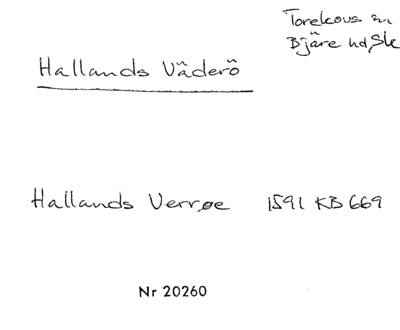 Torekovs sn
Bjäre hd, Sk
Hallands Väderö
Hallands Verrøe 1591 KB 669
Nr 20260